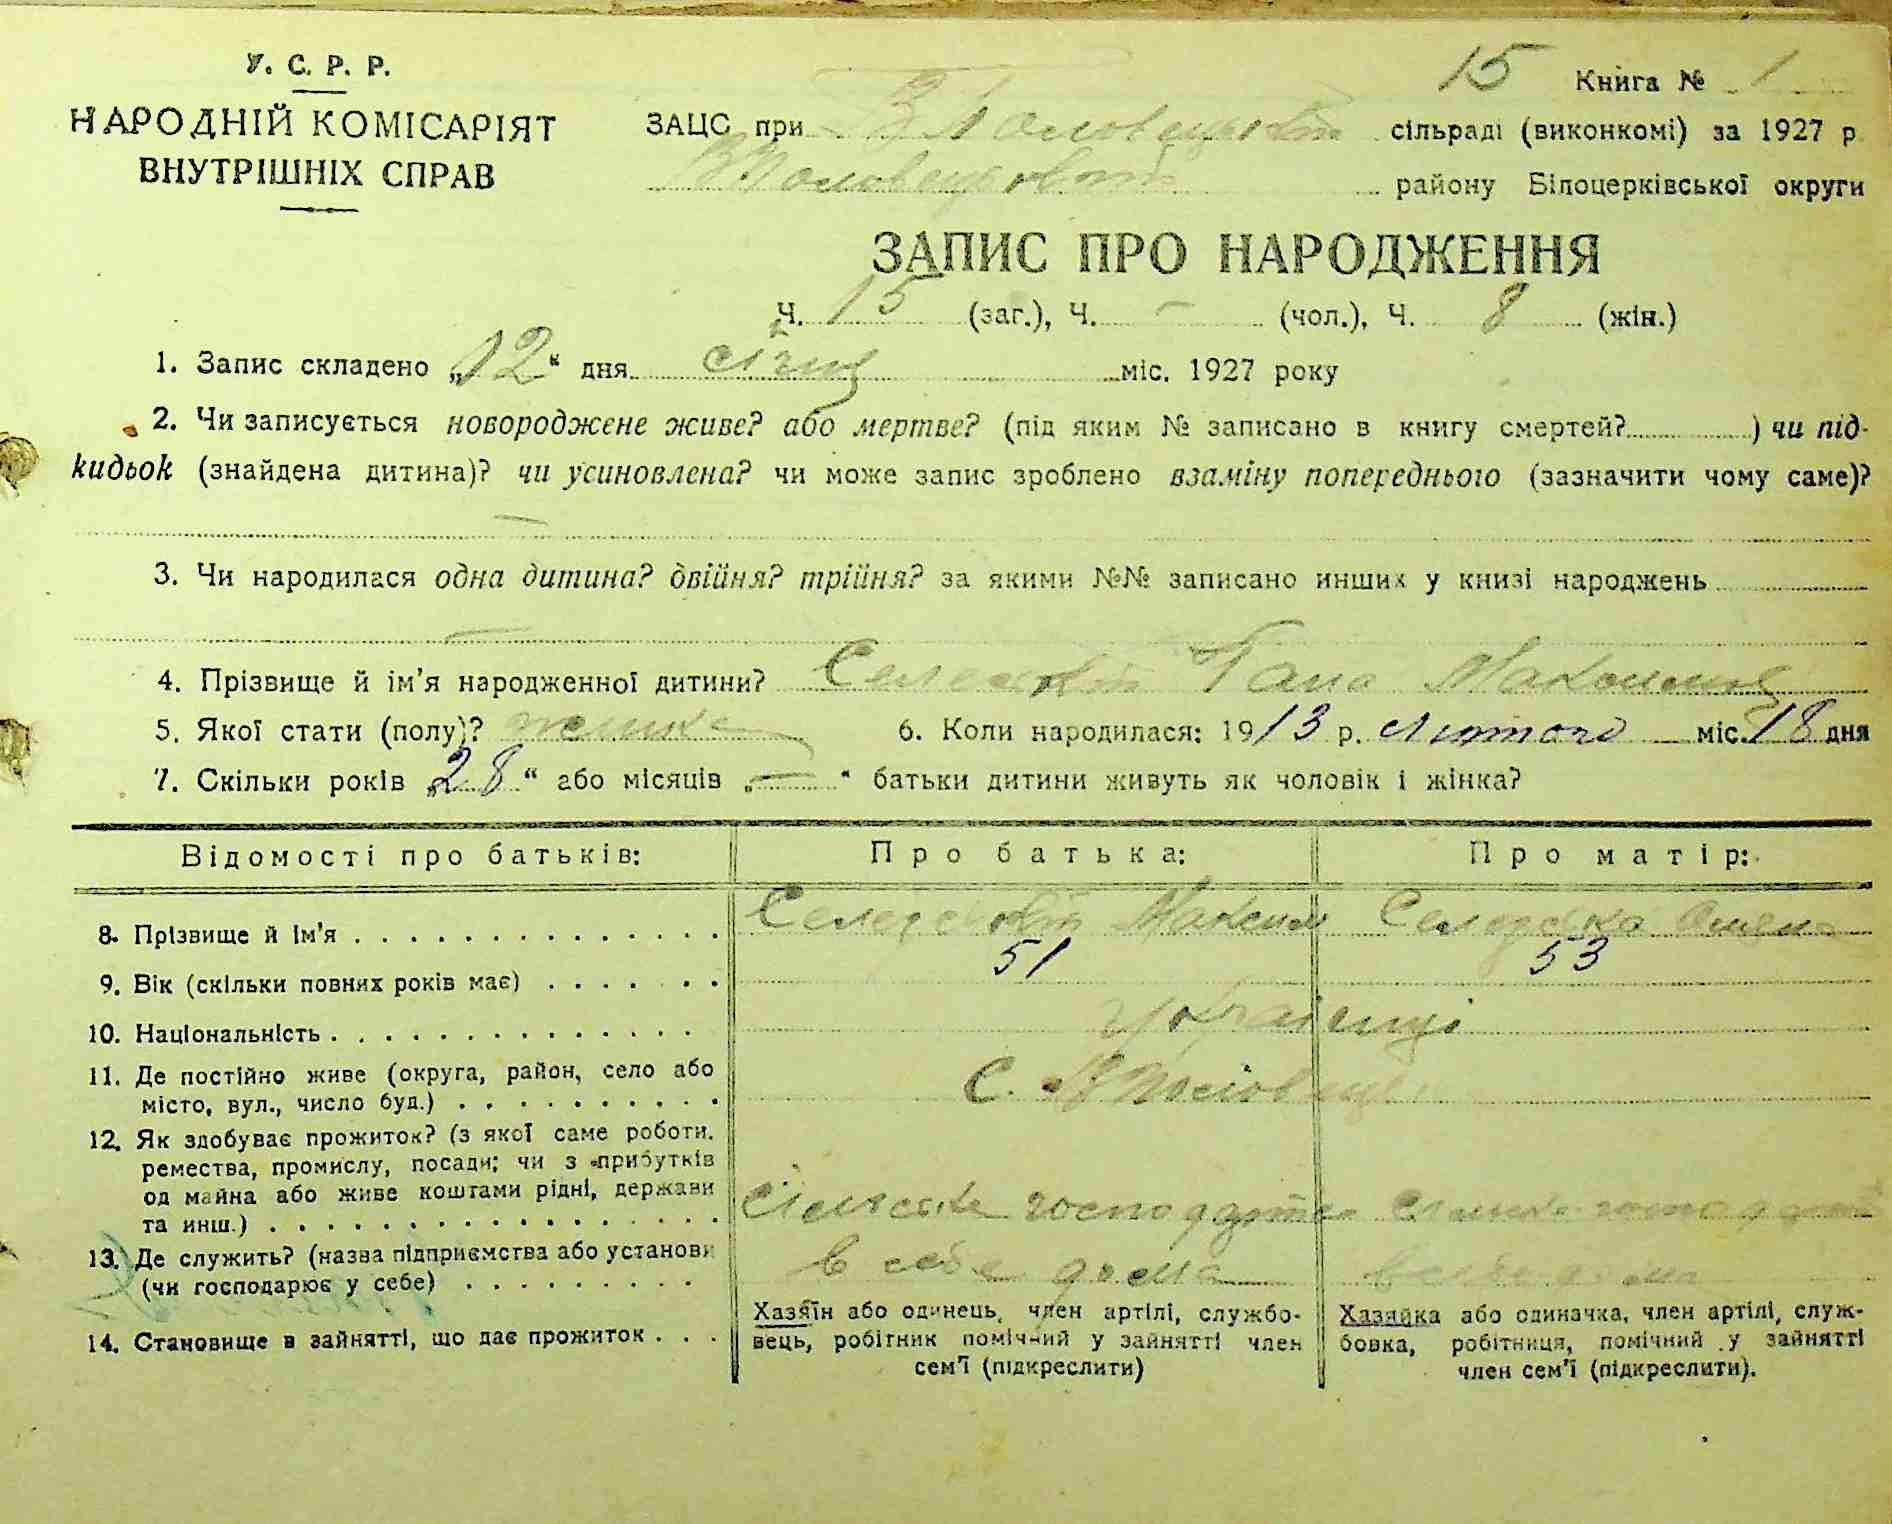 У. С. Р. Р.
НАРОДНІЙ КОМІСАРІЯТ
ВНУТРІШНІХ СПРАВ
15 Книга № 1
ЗАЦС при сільраді (виконкомі) за 1927 р
району Білоцерківської округи
ЗАПИС ПРО НАРОДЖЕННЯ
Ч. 15 (заг.), Ч. — (чол.), Ч. 8 (жін.)
1. Запис складено „12“ дня січня міс. 1927 року
2. Чи записується новороджене живе? або мертве? (під яким № записано в книгу смертей? ) чи під-
кидьок (знайдена дитина)? чи усиновлена? чи може запис зроблено взаміну попереднього (зазначити чому саме)?
—
3. Чи народилася одна дитина? двійня? трійня? за якими №№ записано инших у книзі народжень
—
4. Прізвище й ім'я народженної дитини? Гана Максимів
5. Якої стати (полу)? жіноча 6. Коли народилася: 1913 р. лютого міс. 18 дня
7. Скільки років „28“ або місяців „—“ батьки дитини живуть як чоловік і жінка?
Відомості про батьків: Про батька: Про матір:
8. Прізвище й ім'я . . . . . . . . . . . . . . Максим
9. Вік (скільки повних років має) . . . . . . . 51 53
10. Національність . . . . . . . . . . . . . . українці
11. Де постійно живе (округа, район, село або
місто, вул., число буд.) . . . . . . . . . . С.
12. Як здобуває прожиток? (з якої саме роботи.
ремества, промислу, посади; чи з прибутків
од майна або живе коштами рідні, держави
та инш.) . . . . . . . . . . . . . . . . . .
13. Де служить? (назва підприємства або установи
(чи господарює у себе) . . . . . . . . . в себе дома
14. Становище в зайнятті, що дає прожиток . . .
Хазяїн або одинець, член артілі, службо-
вець, робітник помічний у зайнятті член
сем'ї (підкреслити)
Хазяйка або одиначка, член артілі, служ-
бовка, робітниця, помічний у зайнятті
член сем'ї (підкреслити).